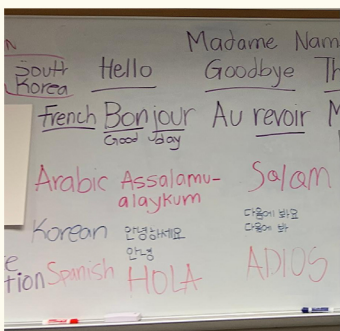 Madame Nam
South Korea
Hello Goodbye Th
French Bonjour Au revoir M
Good day
Arabic Assalamu-alaykum Salam
Korean 안녕하세요 다음에 봐요
안녕 다음에 봐
Spanish HOLA ADIOS
tion